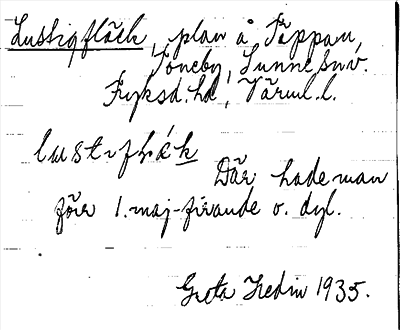 Lustigfläck, plan å Täppan,
Töneby, Sunne sn v.
Fryksd. hd, Värml. l.
lustifläk
Där hade man
förr 1. maj-firande o. dyl.
Greta Hedin 1935.